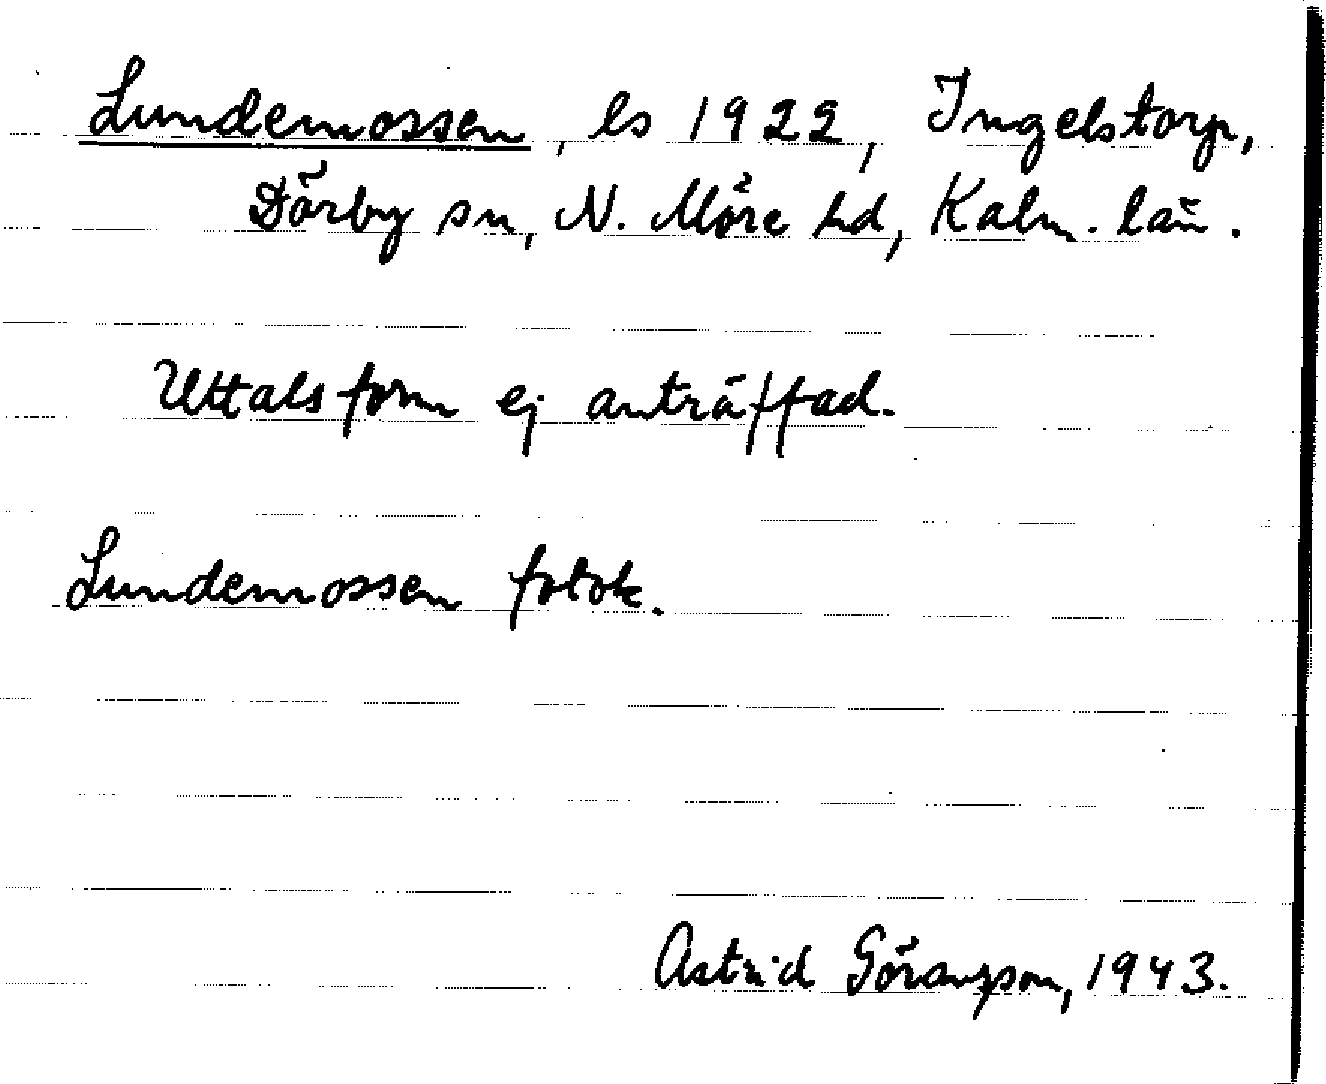 Lundemossen, ls 1922, Ingelstorp,
Dörby sn, N. Möre hd, Kalm. län.
Uttalsform ej anträffad.
Lundemossen fotok.
Astrid Göransson, 1943.